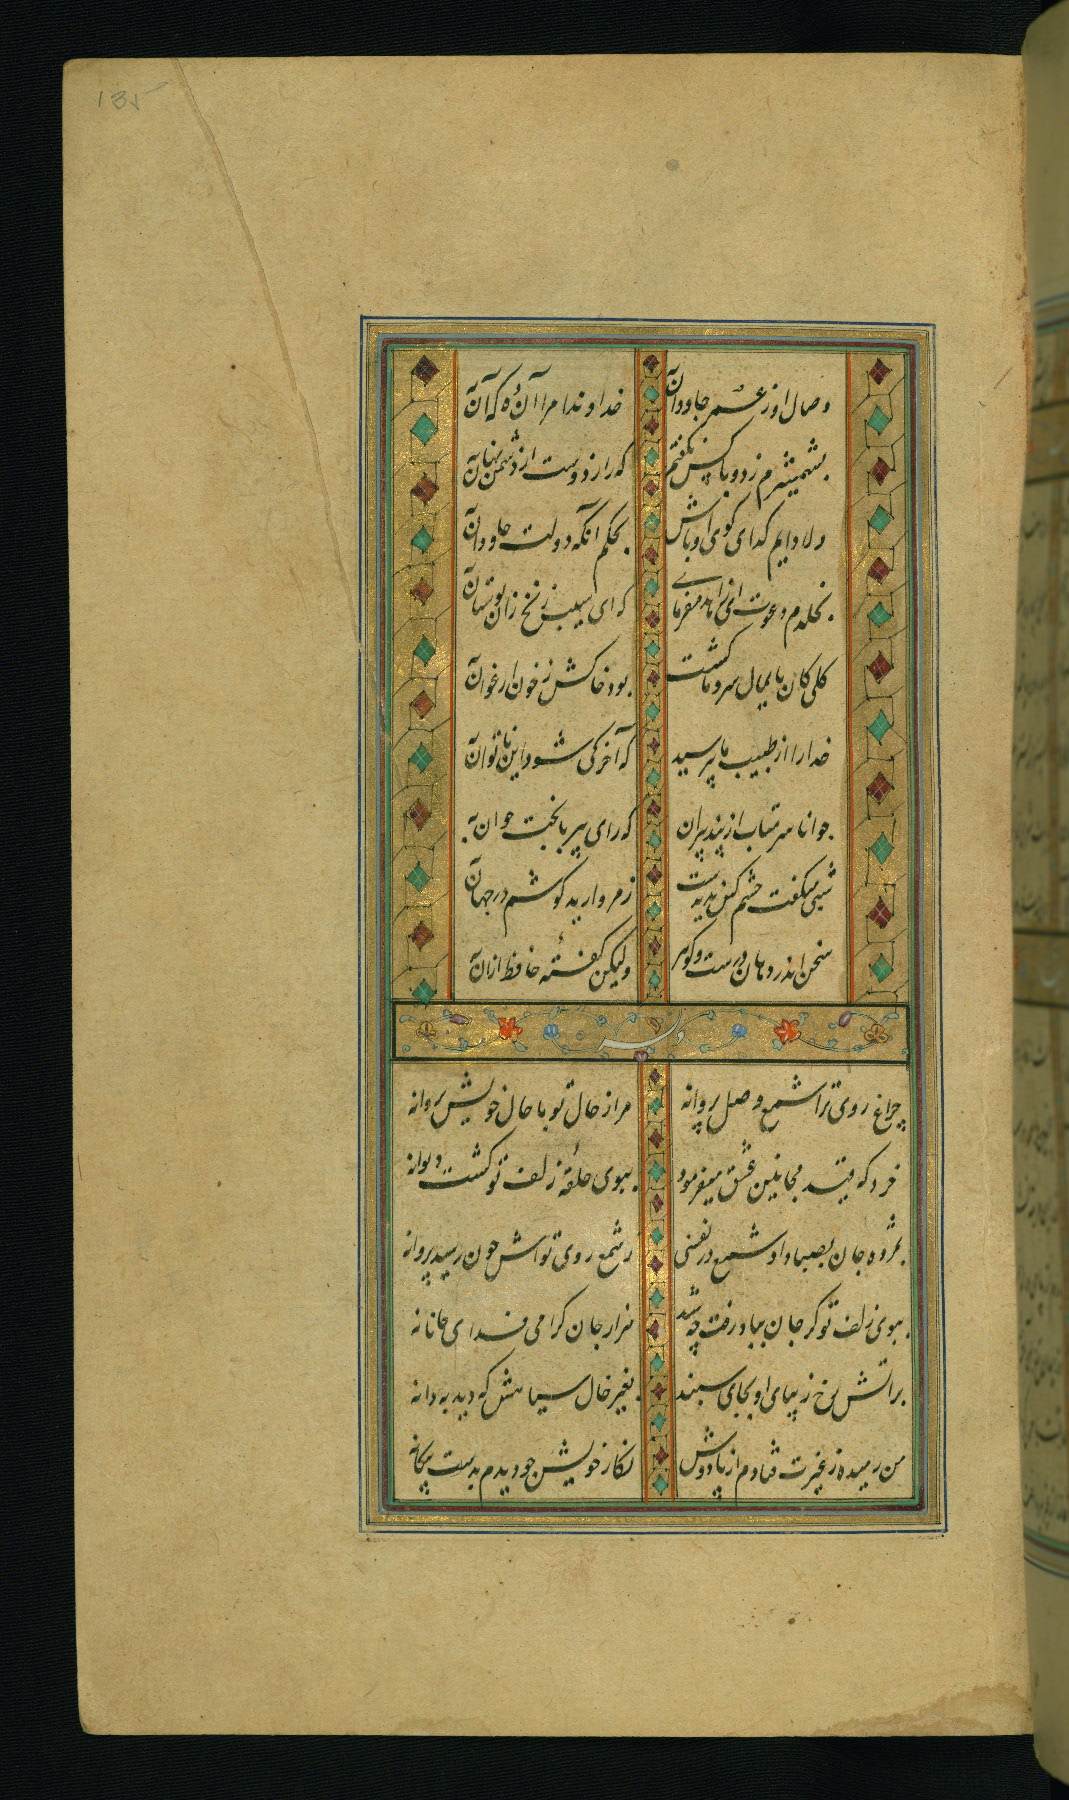 135
وصال او ز عمر جاودان به خداوندا مرا آن ده که آن به
بشمشیرم زد و با کس نگفتم که راز دوست از دشمن نهان به
دلا دایم کدای کوی او باش بحکم آنکه دولت جاودان به
بخلدم دعوت ای زاهد مفرمای که ای سیب زنخ زان بوستان به
کلی کان پایمال سرو ما کشت بود خاکش ز خون ارغوان به
خدا را از طبیب ما بپرسید که آخر کی شود این ناتوان به
جوانا سر متاب از پند پیران که رای پیر با بخت جوان به
شبی میکفت چشم کس ندیدست ز مروارید کوشم در جهان به
سخن اندر دهان درست و کوهر ولیکن کفته حافظ از آن به
وله
چراغ روی ترا شمع وصل پروانه مرا از حال تو با حال خویش پروانه
خرد که قید مجانین عشق میفرمود ببوی حلقه زلف تو کشت دیوانه
بمژده جان بصبا داد شمع در نفسی ز شمع روی تواش چون رسید پروانه
ببوی زلف تو کر جان بباد رفت چه شد هزار جان کرامی فدای جانانه
بر آتش رخ زیبای او بجای سپند بغیر خال سیاهش که دید به دانه
من رمیده ز غیرت فتادم از پا دوش نکار خویش چو دیدم بدست بیکانه